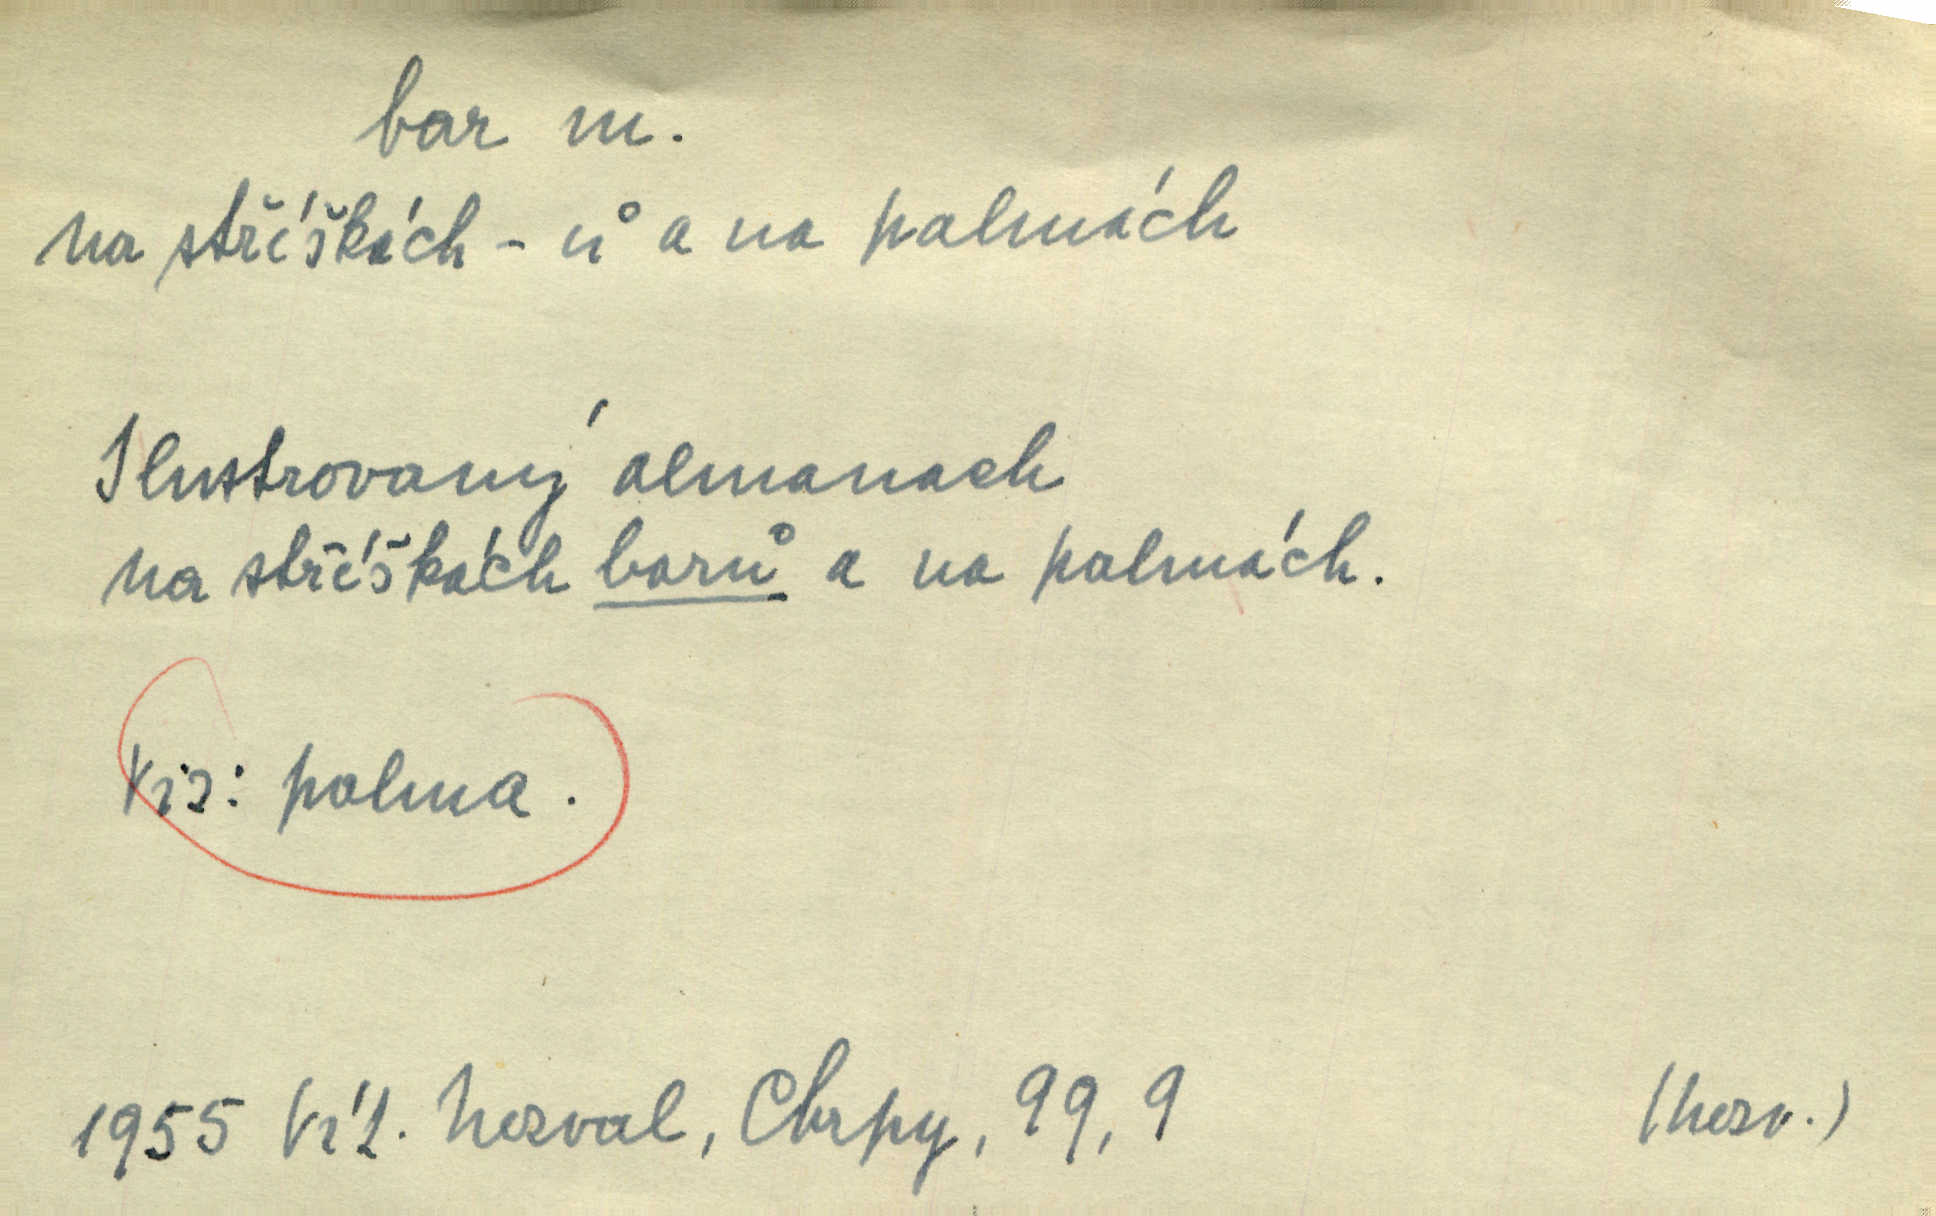 bar m.
na stříškách - ů a na palmách
Ilustrovaný almanach
na stříškách barů a na palmách.
Viz: palma.
1955 Vít. Nezval, Chrpy, 99, 9 (Nezv.)